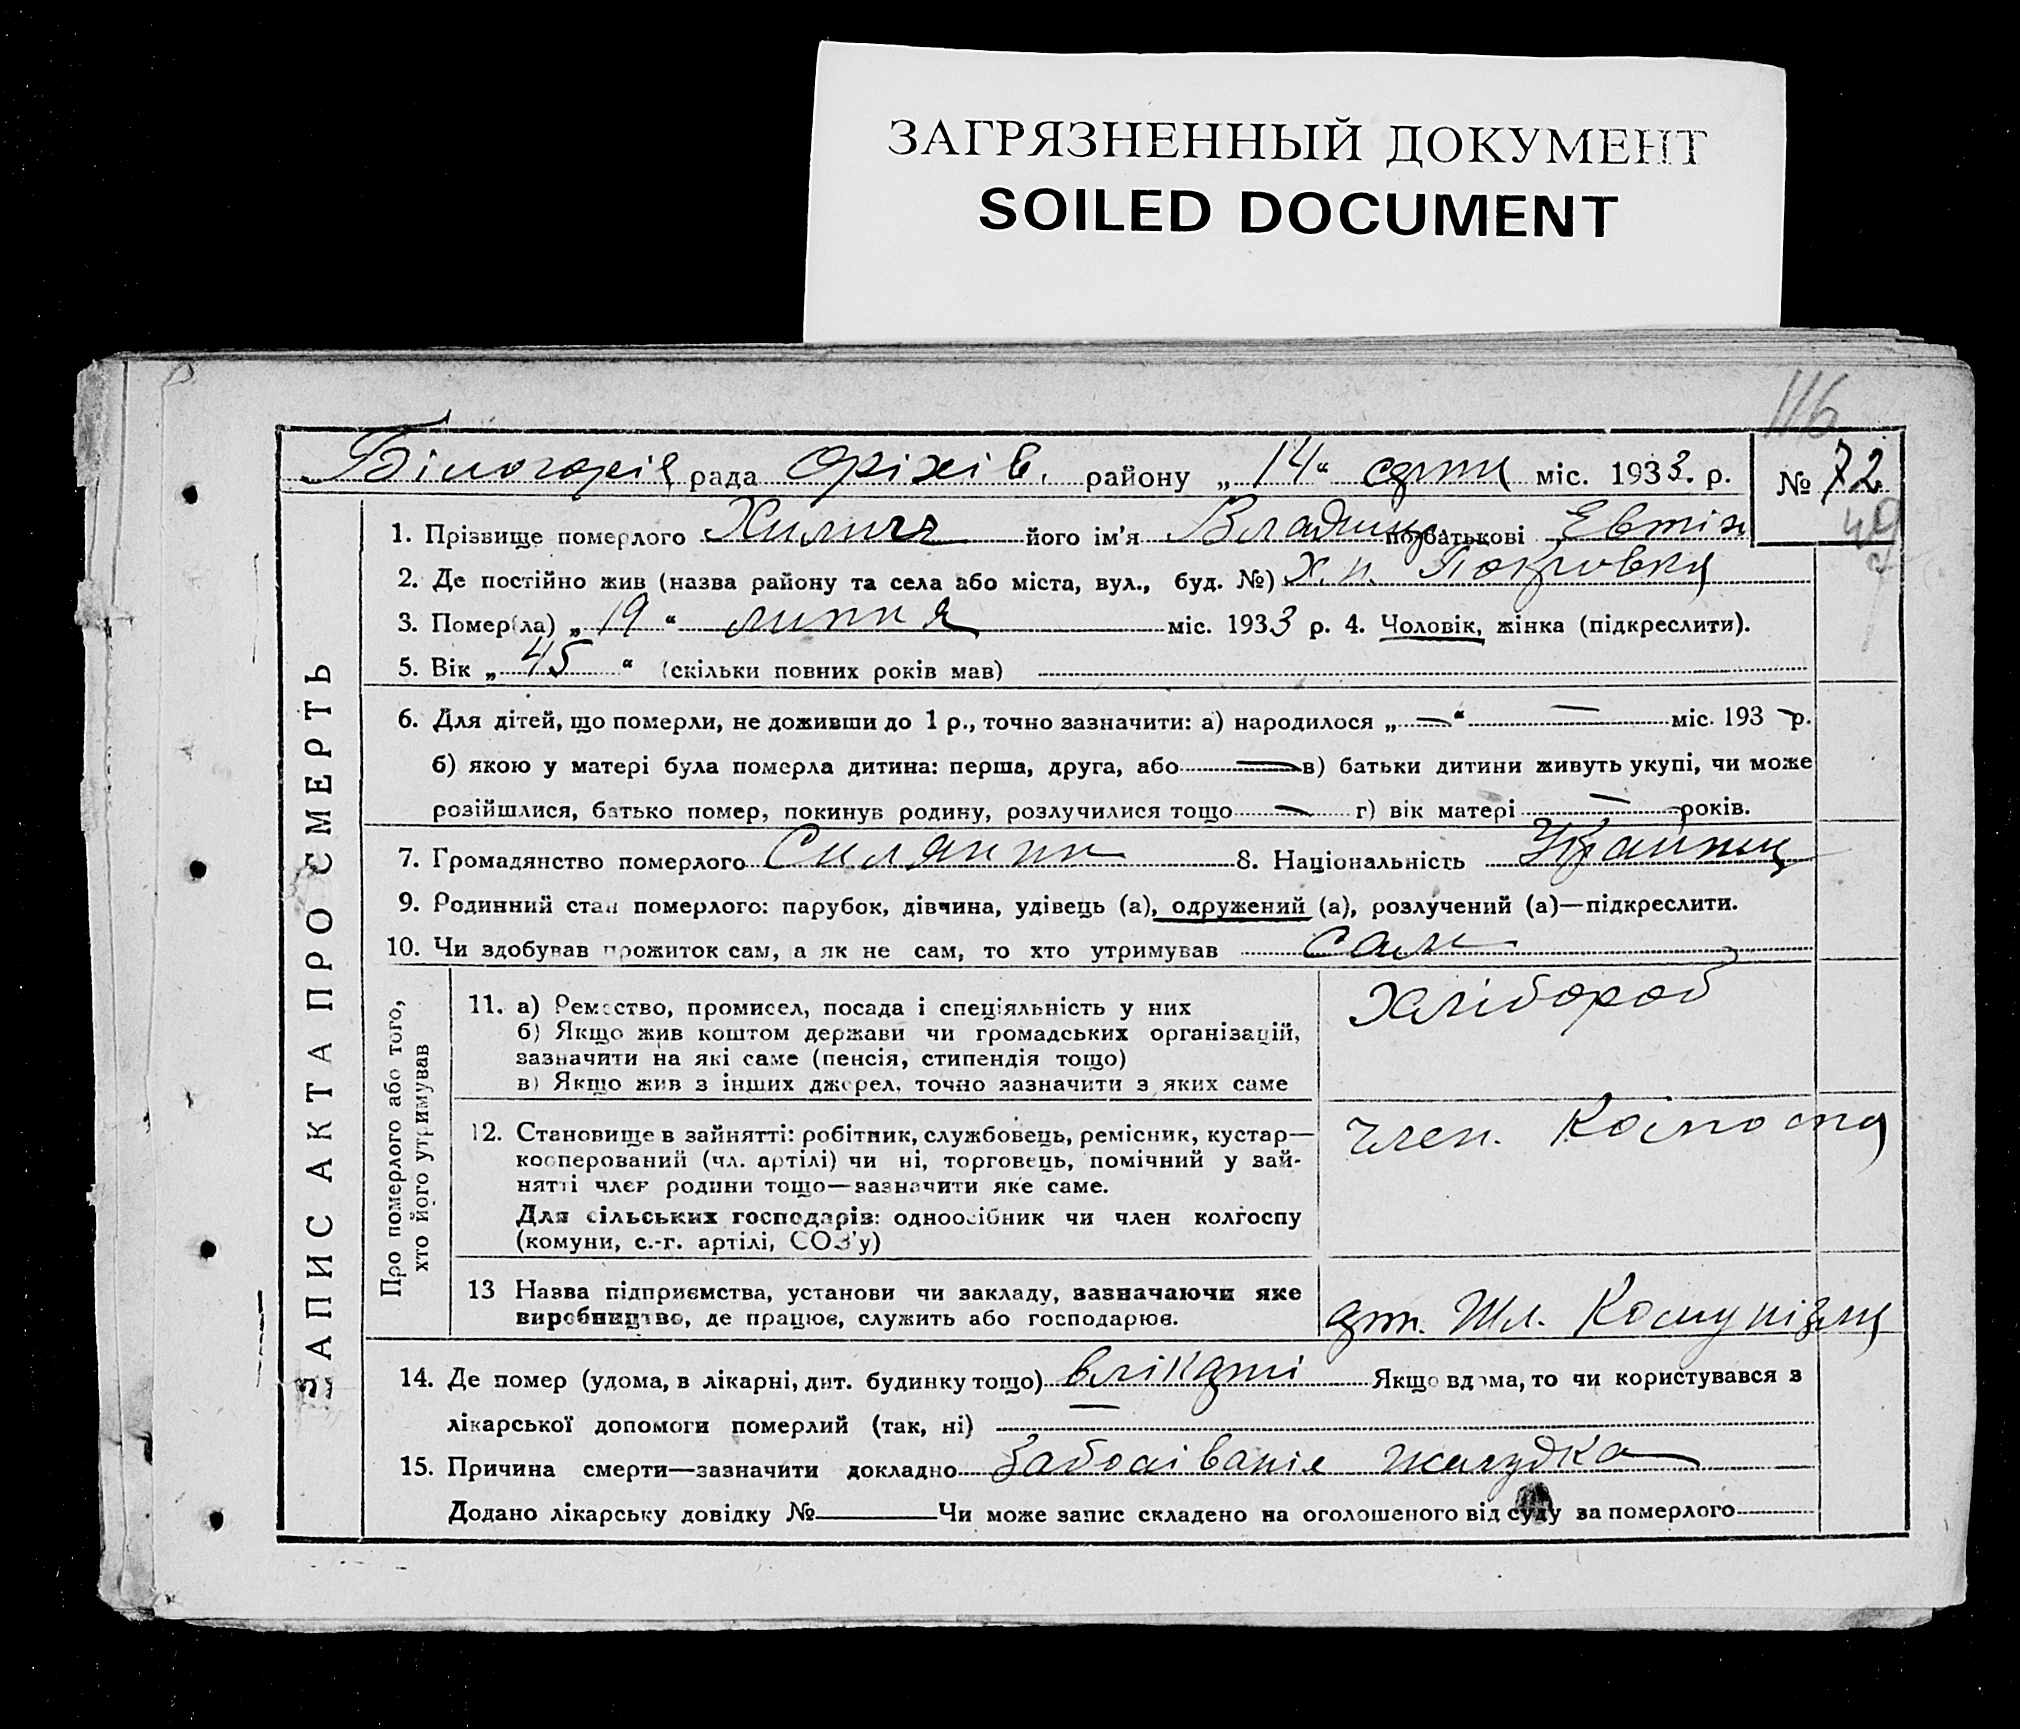 ЗАГРЯЗНЕННЫЙ ДОКУМЕНТ
SOILED DOCUMENT
116
рада Оріхів. району „14“ міс. 1933. р. № 72
1. Прізвище померлого його ім'я по батькові Евтіх
2. Де постійно жив (назва району та села або міста, вул., буд. №) х. н. Покровка
3. Помер(ла) „19“ липня міс. 1933 р. 4. Чоловік, жінка (підкреслити).
5. Вік „45“ (скільки повних років мав)
6. Для дітей, що померли, не доживши до 1 р., точно зазначити: а) народилося „—“ — міс. 193 – р.
б) якою у матері була померла дитина: перша, друга, або — в) батьки дитини живуть укупі, чи може
розійшлися, батько помер, покинув родину, розлучилися тощо — г) вік матері — років.
7. Громадянство померлого Силянин 8. Національність Украинец
9. Родинний стан померлого: парубок, дівчина, удівець (а), одружений (а), розлучений (а)—підкреслити.
10. Чи здобував прожиток сам, а як не сам, то хто утримував сам
ЗАПИС АКТА ПРО СМЕРТЬ
Про померлого або того,
хто його утримував
11. а) Ремество, промисел, посада і спеціяльність у них
б) Якщо жив коштом держави чи громадських організацій,
зазначити на які саме (пенсія, стипендія тощо)
в) Якщо жив з інших джерел, точно зазначити з яких саме
Хлібороб
12. Становище в зайнятті: робітник, службовець, ремісник, кустар—
кооперований (чл. артілі) чи ні, торговець, помічний у зай-
нятті член родини тощо—зазначити яке саме.
Для сільських господарів: одноосібник чи член колгоспу
(комуни, с.-г. артілі, СОЗ'у)
член.
13 Назва підприємства, установи чи закладу, зазначаючи яке
виробництво, де працює, служить або господарює.
арт. Шл. Комунізма
14. Де помер (удома, в лікарні, дит. будинку тощо) Якщо вдома, то чи користувався з
лікарської допомоги померлий (так, ні) —
15. Причина смерти—зазначити докладно Заболіваніе желудка
Додано лікарську довідку № Чи може запис складено на оголошеного від суду за померлого